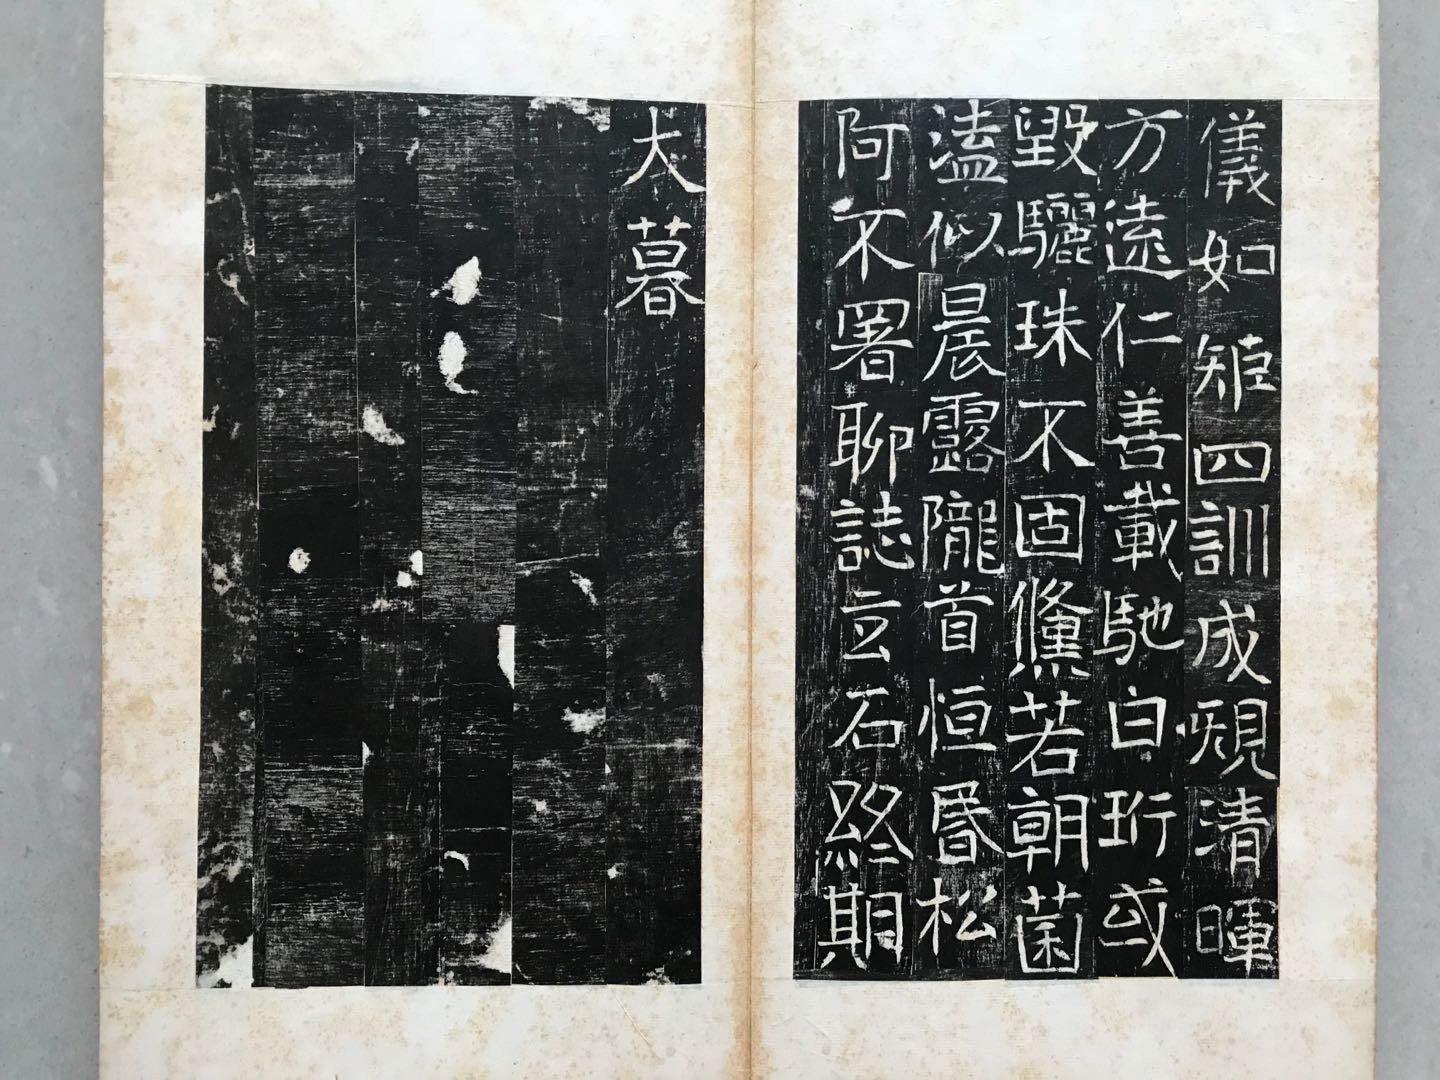 儀如姬四訓成覞清暉
方遠仁善載馳白珩或
毀驪珠不固儵若朝菌
溘似晨露隴首恒昏松
阿不署聊誌玄石終期
大暮